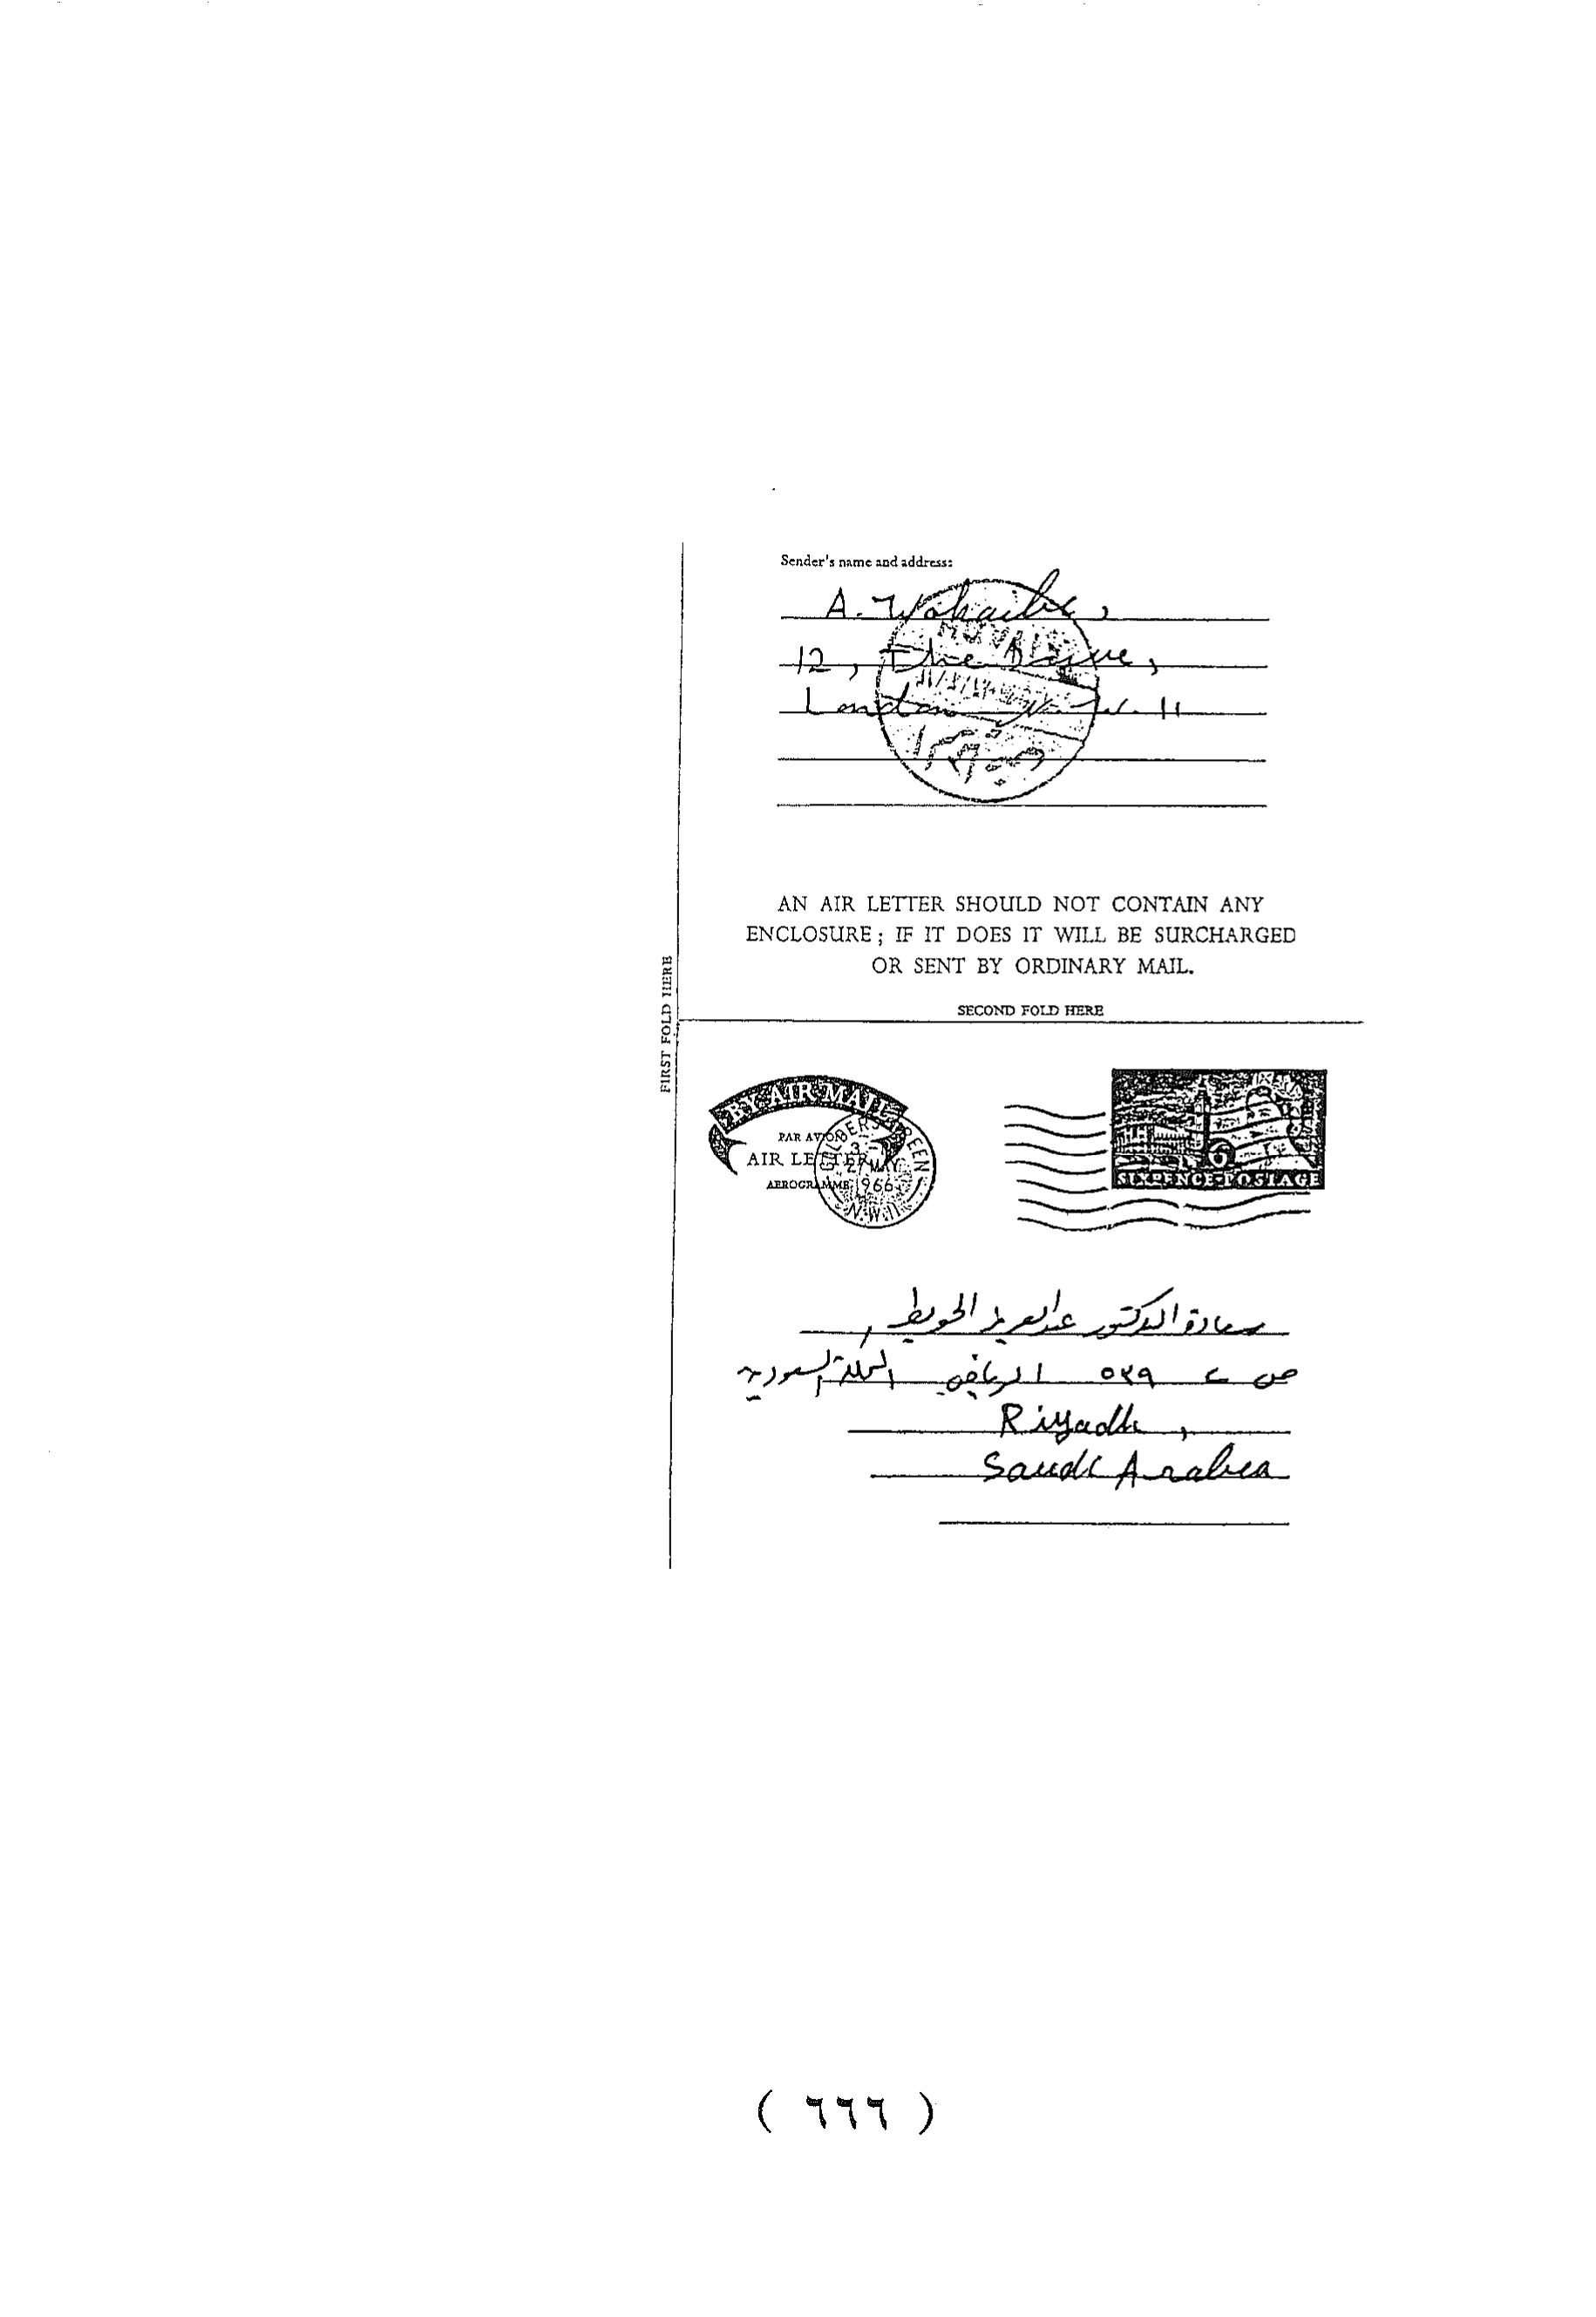 Sender's name and address:
A. Wohaibi,
12, The Drive,
London N.W. 11
AN AIR LETTER SHOULD NOT CONTAIN ANY
ENCLOSURE; IF IT DOES IT WILL BE SURCHARGED
OR SENT BY ORDINARY MAIL.
FIRST FOLD HERE
SECOND FOLD HERE
BY AIR MAIL
PAR AVION
AIR LETTER
AEROGRAMME
GOLDERS GREEN
27 MAY
1966
N.W.11
6
SIXPENCE POSTAGE
سعادة الدكتور عبدالعزيز الخويطر,
ص ب ٥٣٩ الرياض المملكة السعودية
Riyadh,
Saudi Arabia
( ٦٦٦ )